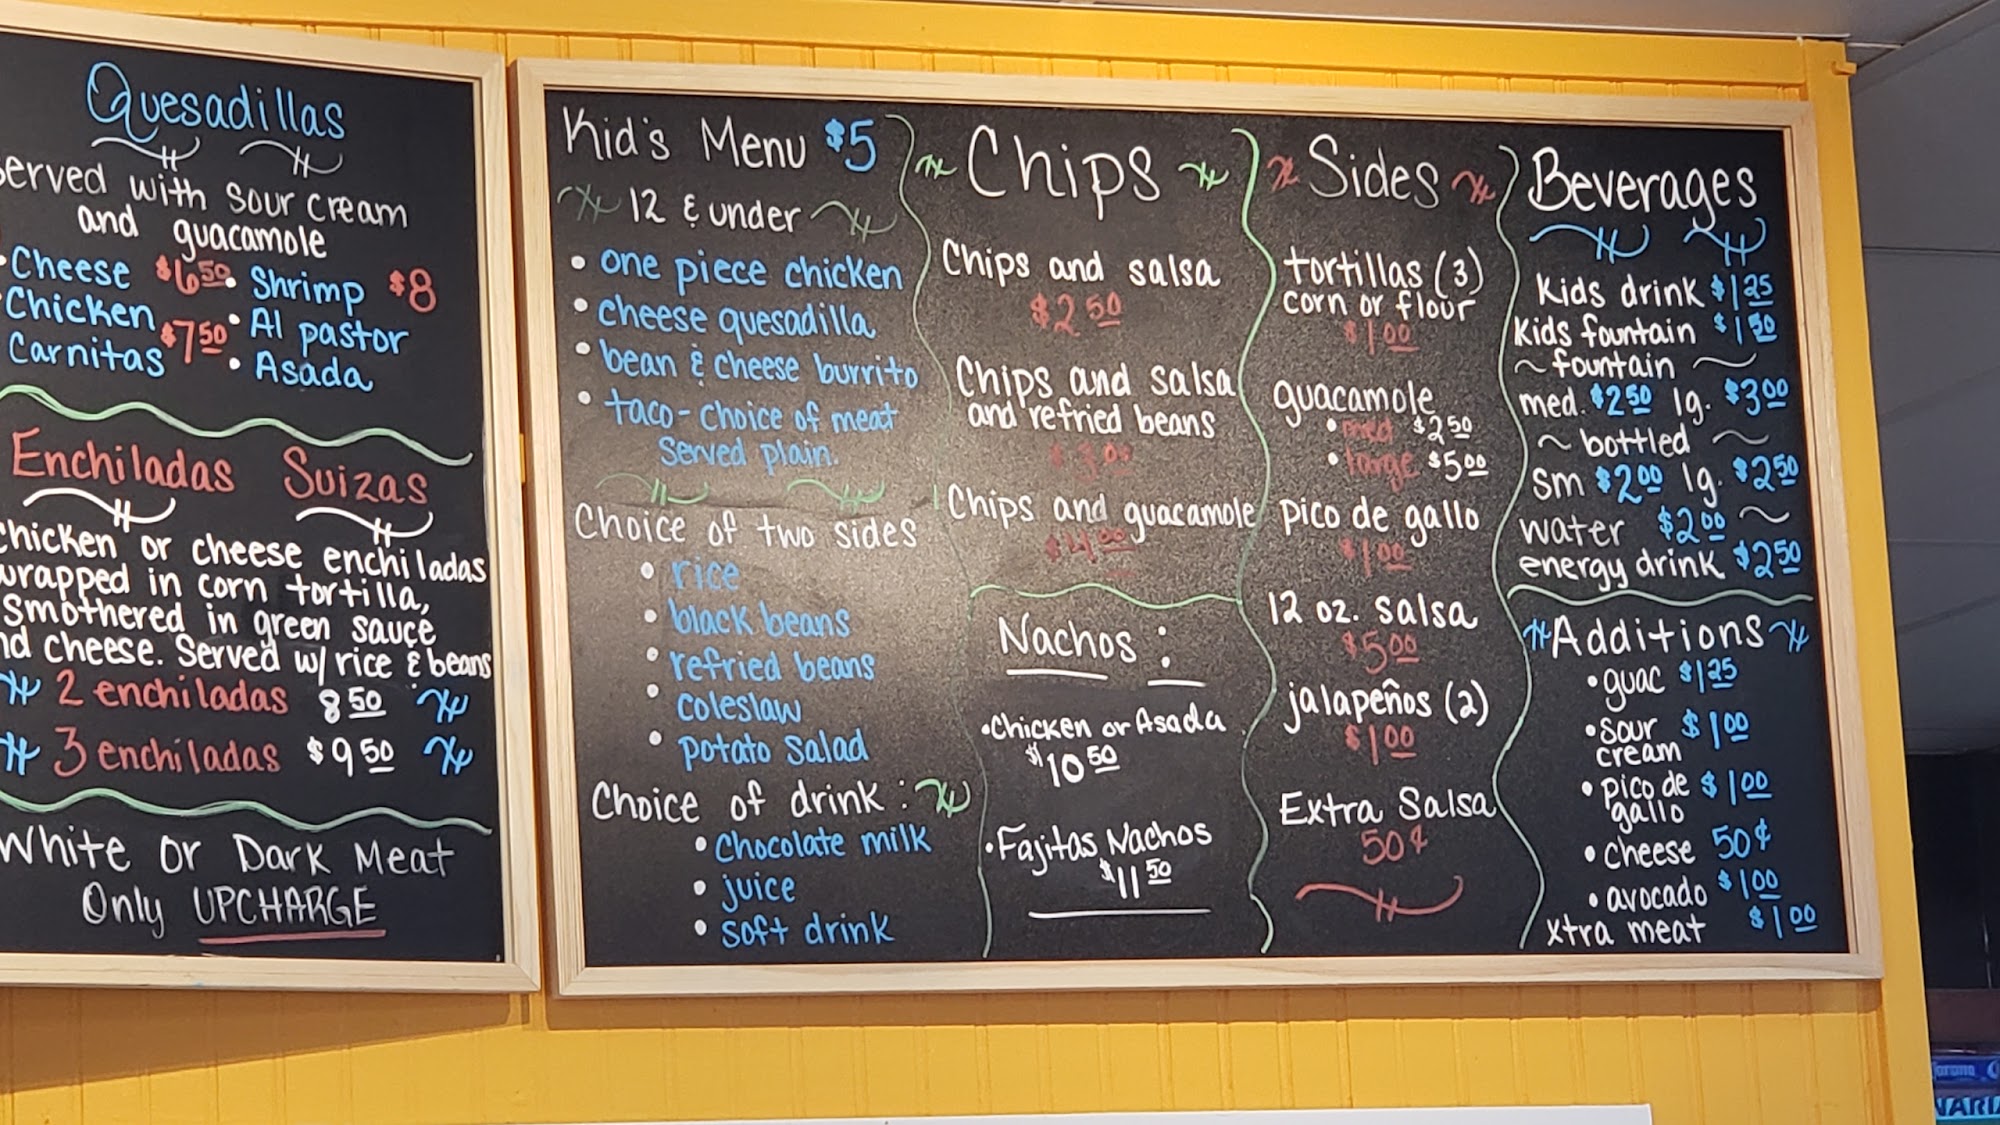 Quesadillas
Served with sour cream
and guacamole
• Cheese $6.50 • Shrimp $8
Chicken $7.50 • Al pastor
Carnitas • Asada
Enchiladas Suizas
Chicken or cheese enchiladas
wrapped in corn tortilla,
smothered in green sauce
and cheese. Served w/ rice & beans
2 enchiladas 8.50
3 enchiladas $9.50
White or Dark Meat
Only UPCHARGE
Kid's Menu $5
12 & under
• one piece chicken
• cheese quesadilla
• bean & cheese burrito
• taco - choice of meat
Served plain.
Choice of two sides
• rice
• black beans
• refried beans
• coleslaw
• potato salad
Choice of drink:
• chocolate milk
• juice
• soft drink
Chips
Chips and salsa
$2.50
Chips and salsa
and refried beans
$3.00
Chips and guacamole
$4.00
Nachos:
• Chicken or Asada
$10.50
• Fajitas Nachos
$11.50
Sides
tortillas (3)
corn or flour
$1.00
guacamole
• med $2.50
• large $5.00
pico de gallo
$1.00
12 oz. salsa
$5.00
jalapeños (2)
$1.00
Extra Salsa
50¢
Beverages
Kids drink $1.25
Kids fountain $1.50
~ fountain ~
med. $2.50 lg. $3.00
~ bottled ~
sm $2.00 lg. $2.50
water $2.00 ~
energy drink $2.50
Additions
• guac $1.25
• sour cream $1.00
• pico de gallo $1.00
• cheese 50¢
• avocado $1.00
xtra meat $1.00